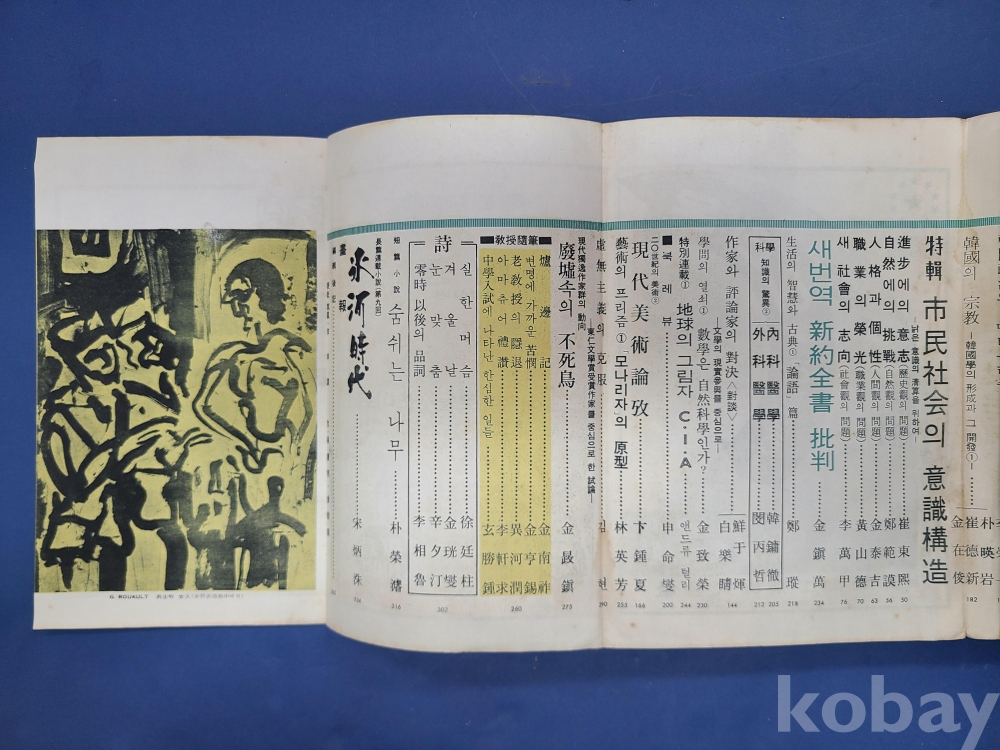 韓國의 宗敎
—韓國學의 形成과 그 開發①—
朴 暎 岩
崔 德 新
金 在 俊
182
特輯 市民社会의 意識構造
—낡은 意識의 淸算을 위하여—
進步에의 意志(歷史觀의 問題) 崔東熙 50
自然에의 挑戰(自然觀의 問題) 鄭範謨 56
人格과 個性(人間觀의 問題) 金泰吉 63
職業의 榮光(職業觀의 問題) 黃山德 70
새 社會의 志向(社會觀의 問題) 李萬甲 76
새번역 新約全書 批判 金鎭萬 234
生活의 智慧와 古典① 「論語」篇 鄭瑽 218
學科 知識의 驚異②
內科醫學 韓鏞徹 205
外科醫學 閔丙哲 212
作家와 評論家의 對決<對談>
—文學의 現實參與를 중심으로—
鮮于煇
白樂晴 144
學問의 열쇠① 數學은 自然科學인가? 金致榮 230
特別連載① 地球의 그림자 C·I·A 앤드류 털리 244
■북 레 뷰 申命燮 200
二○世紀의 美術② 現代美術論攷 卞鍾夏 186
藝術의 프리즘① 「모나리자」의 原型 林英芳 253
虛無主義의 克服 김 현 290
現代獨逸作家群의 動向 廢墟속의 不死鳥 金晸鎭 273
■敎授隨筆■
爐邊記 金南祚
변명에 가까운 苦憫 金亨錫
老敎授의 隱退 異河潤 260
아마츄어 禮讚 李軒求
中學入試에 나타난 한심한 일들 玄勝鍾
詩
실한머슴 徐廷柱
겨울날 金珖燮
눈맞춤 辛夕汀 302
零時以後의 品詞 李相魯
短篇小說 숨쉬는 나무 朴榮濬 316
長篇連載小說(第九回) 氷河時代 宋炳洙
畫報
G. ROUAULT
kobay